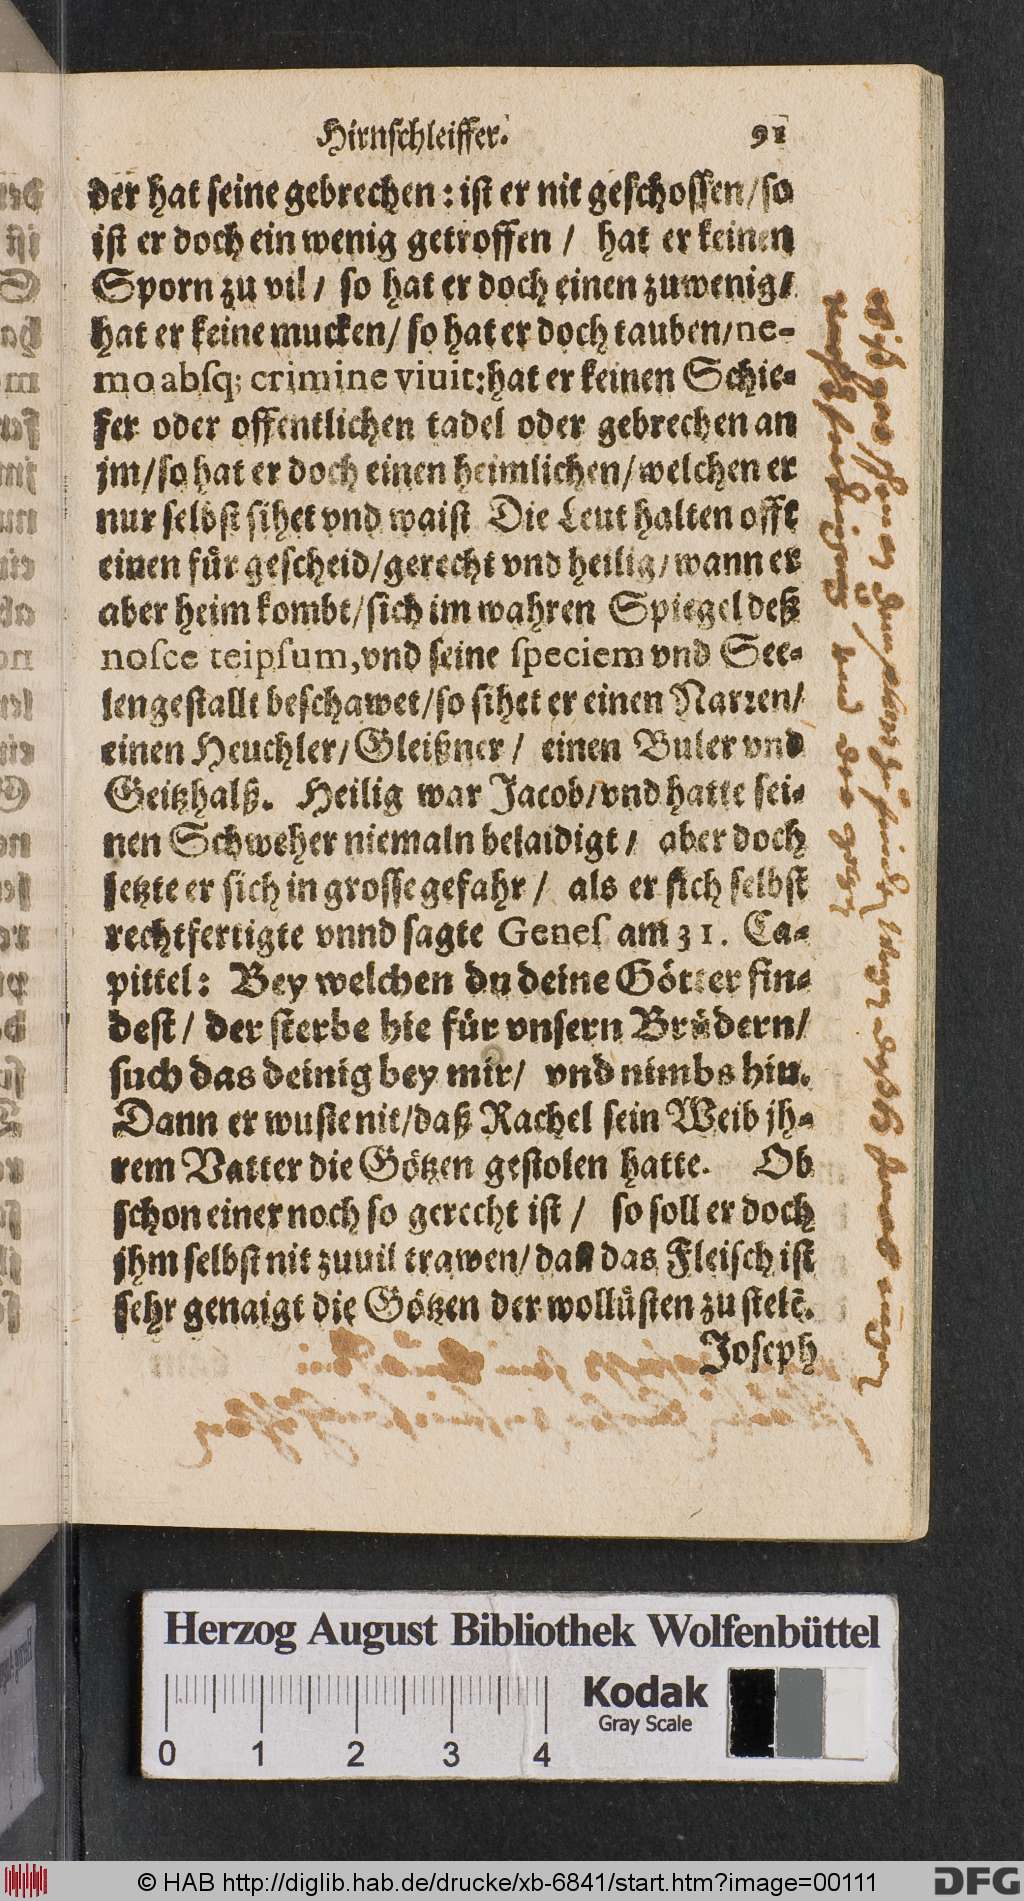 Hirnschleiffer. 91
der hat seine gebrechen: ist er nit geschossen/so
ist er doch ein wenig getroffen / hat er keinen
Sporn zu vil / so hat er doch einen zuwenig/
hat er keine mucken/ so hat er doch tauben/ne-
mo absq; crimine viuit: hat er keinen Schie-
fer oder offentlichen tadel oder gebrechen an
jm/so hat er doch einen heimlichen/welchen er
nur selbst sihet vnd waist Die Leut halten offt
einen für gescheid/gerecht vnd heilig/wann er
aber heim kombt/sich im wahren Spiegel deß
nosce teipsum, vnd seine speciem vnd See-
lengestallt beschawet/so sihet er einen Narren/
einen Heuchler/Gleißner / einen Buler vnd
Geitzhalß. Heilig war Jacob/vnd hatte sei-
nen Schweher niemaln belaidigt / aber doch
setzte er sich in grosse gefahr / als er sich selbst
rechtfertigte vnnd sagte Genes am 31. Ca-
pittel: Bey welchen du deine Götter fin-
dest / der sterbe hie für vnsern Brüdern/
such das deinig bey mir/ vnd nimbs hin.
Dann er wuste nit/daß Rachel sein Weib jh-
rem Vatter die Götzen gestolen hatte. Ob
schon einer noch so gerecht ist / so soll er doch
jhm selbst nit zuuil trawen/dañ das Fleisch ist
sehr genaigt die Götzen der wollüsten zu stelẽ.
Joseph
Herzog August Bibliothek Wolfenbüttel
Kodak
Gray Scale
0 1 2 3 4
© HAB http://diglib.hab.de/drucke/xb-6841/start.htm?image=00111
DFG